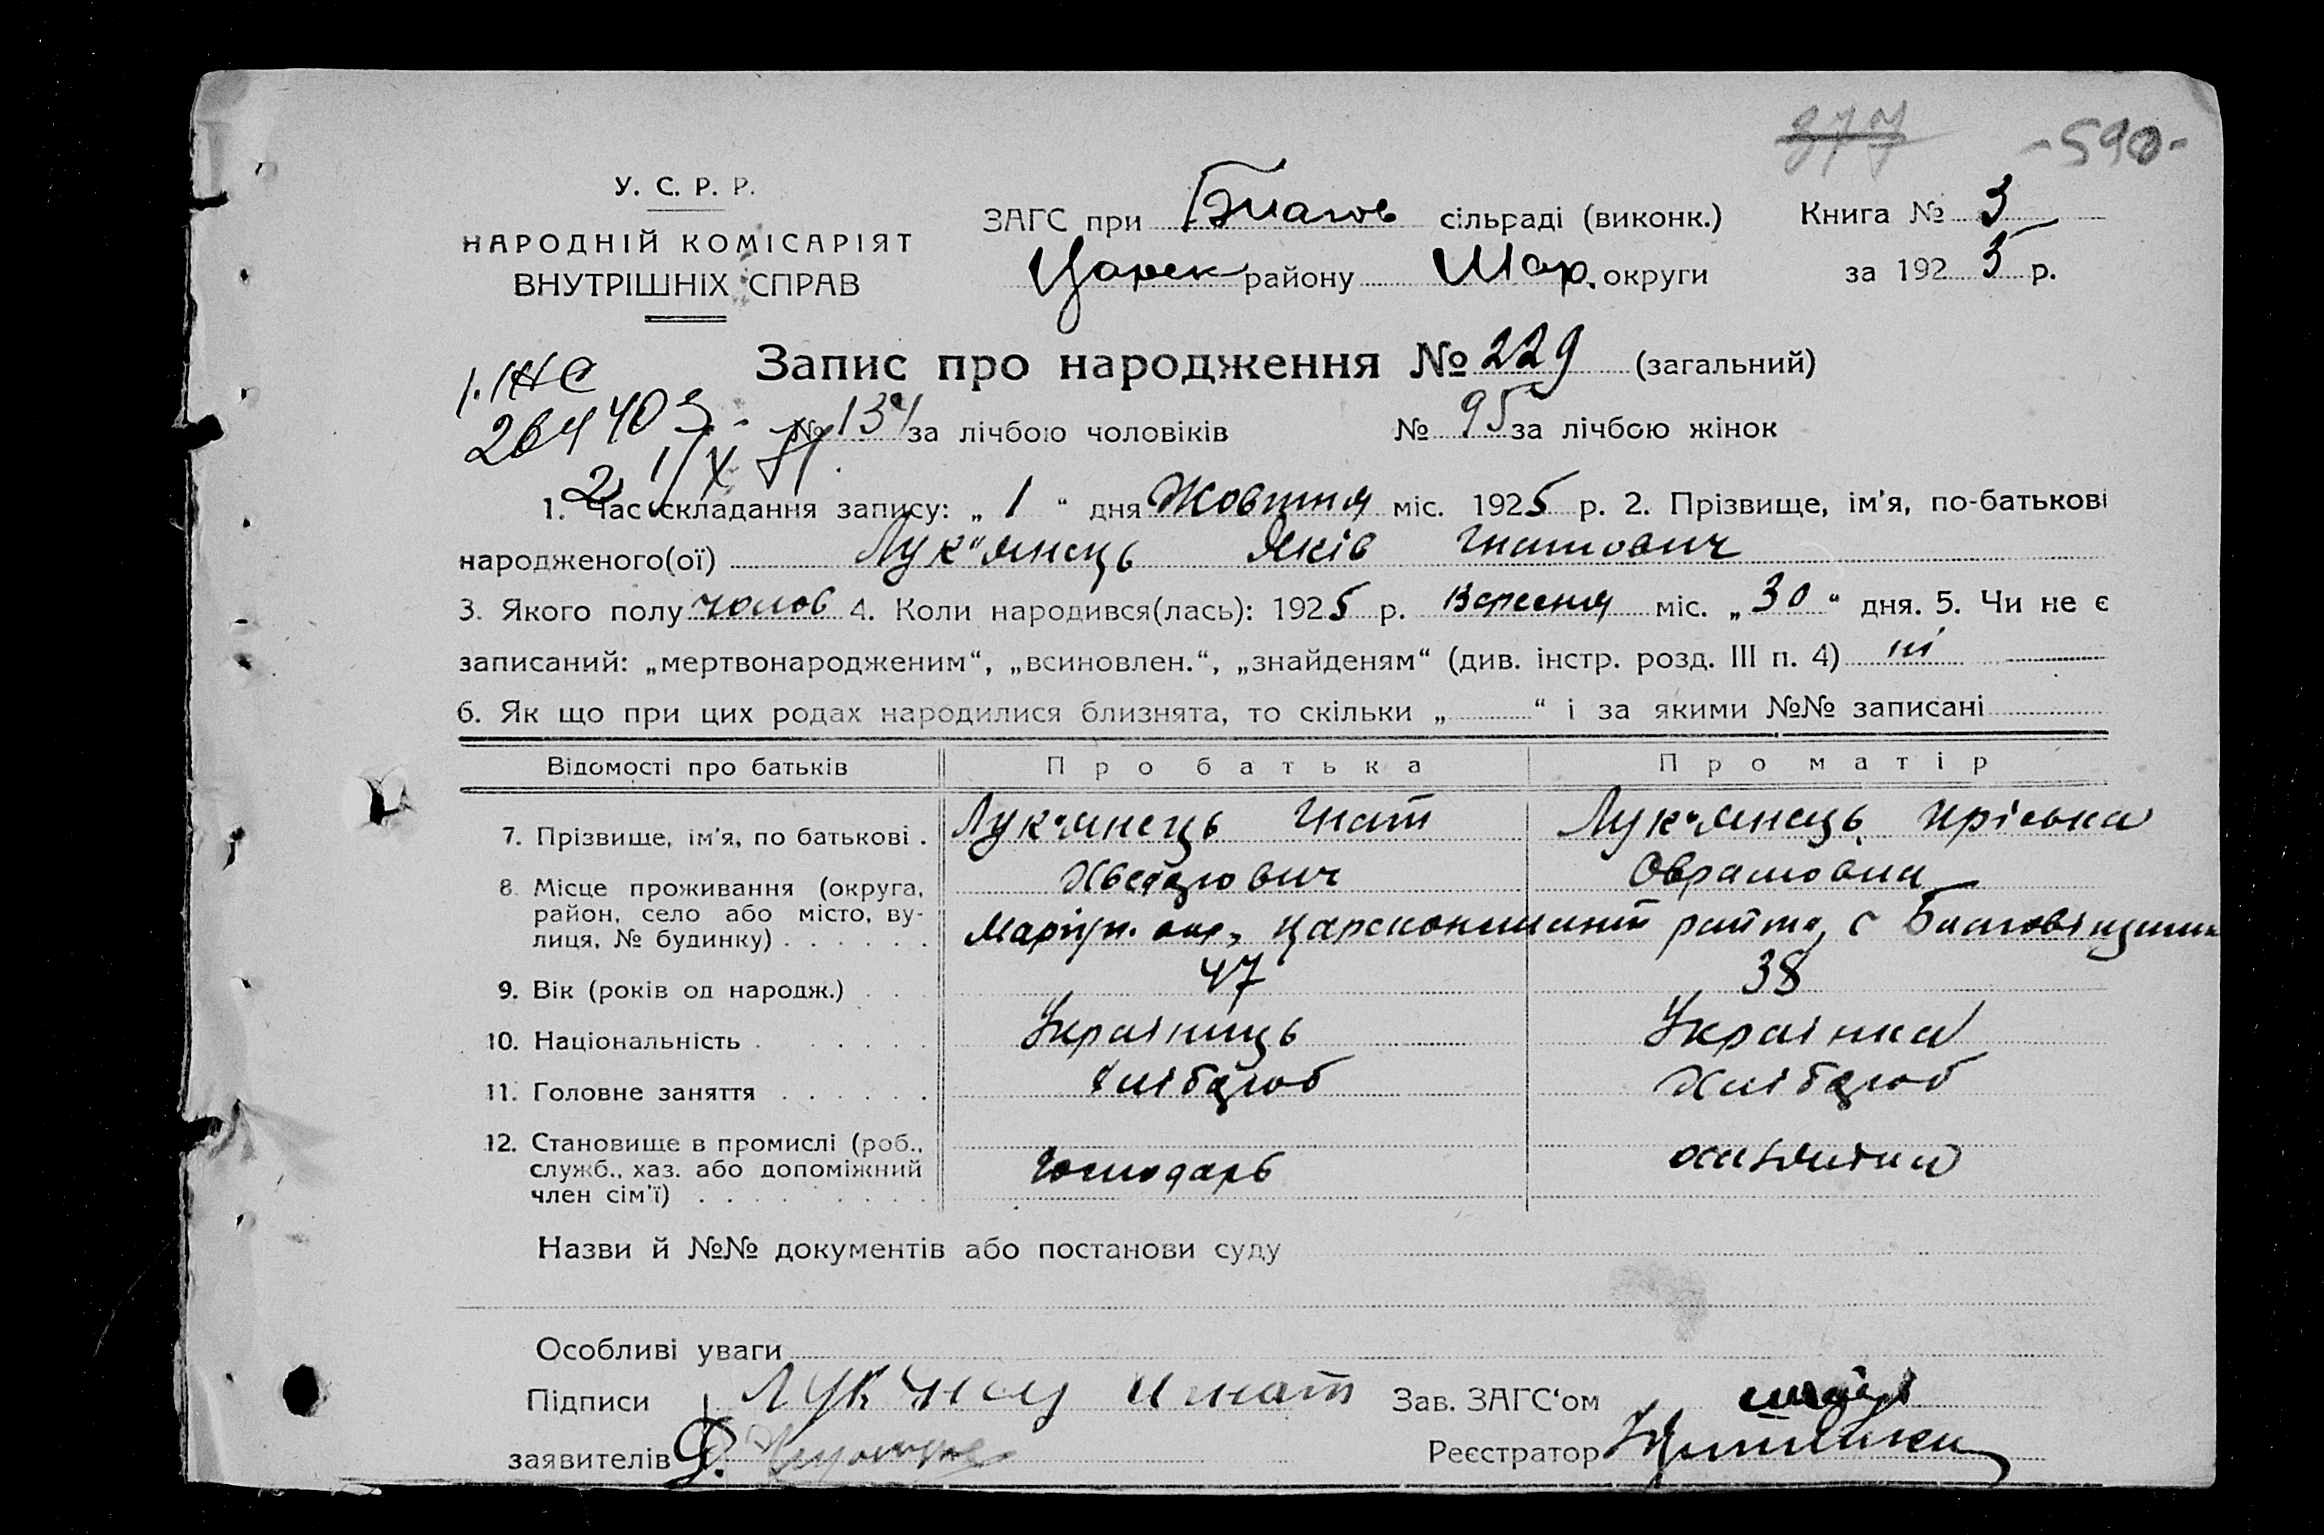 377 -590-
У. С. Р. Р.
НАРОДНІЙ КОМІСАРІЯТ
ВНУТРІШНІХ СПРАВ
ЗАГС при Благов сільраді (виконк.) Книга № 3
Царек району Мар. округи за 1925 р.
Запис про народження № 229 (загальний)
1. ІНС
264403
№ 134 за лічбою чоловіків № 95 за лічбою жінок
1. Час складання запису: „ 1 “ дня Жовтня міс. 1925 р. 2. Прізвище, ім’я, по-батькові
народженого(ої) Лук"янець Яків Гнатович
3. Якого полу чолов 4. Коли народився(лась): 1925 р. Вересня міс. „ 30 “ дня. 5. Чи не є
записаний: „мертвонародженим“, „всиновлен.“, „знайденям“ (див. інстр. розд. III п. 4) ні
6. Як що при цих родах народилися близнята, то скільки „ “ і за якими №№ записані
Відомості про батьків Про батька Про матір
7. Прізвище, ім’я, по батькові . Лук"янець Гнат Лук"янець Пріська
Хведорович Оврамовна
8. Місце проживання (округа,
район, село або місто, ву-
лиця, № будинку) . . . . . . Маріуп. окр., району, с Благовіщенка
9. Вік (років од народж.) . . . 47 38
10. Національність . . . . . . Українець Українка
11. Головне заняття . . . . . . Хлібороб Хлібороб
12. Становище в промислі (роб.,
служб., хаз. або допоміжний
член сім’ї) . . . . . . . . . Господарь
Назви й №№ документів або постанови суду
Особливі уваги
Підписи Игнат Зав. ЗАГС‘ом
заявителів Реєстратор